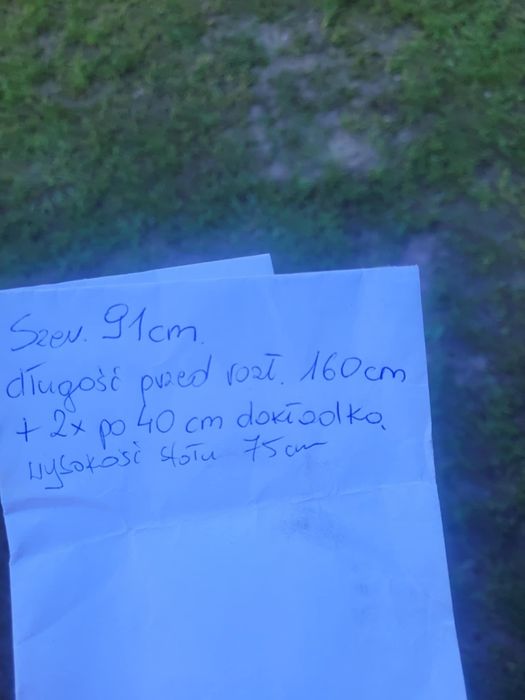 Szer. 91cm.
długość przed rozł. 160cm
+ 2x po 40 cm dokładka.
wysokość stołu 75cm